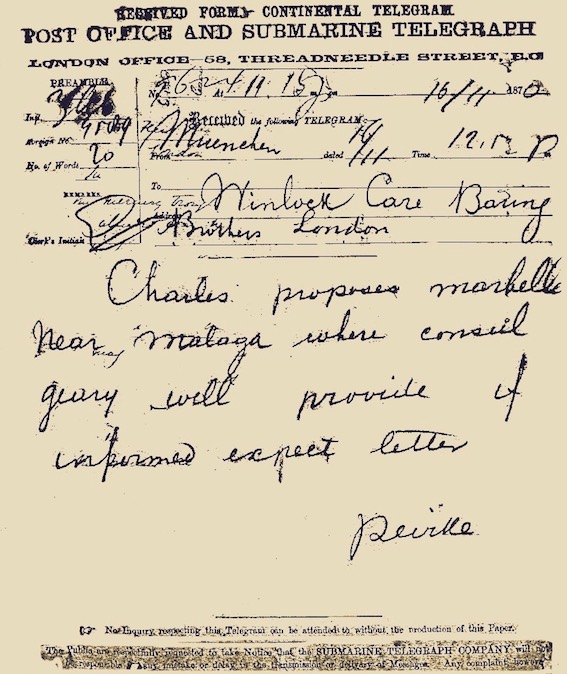 RECEIVED FORM, CONTINENTAL TELEGRAM.
POST OFFICE AND SUBMARINE TELEGRAPH
LONDON OFFICE—58, THREADNEEDLE STREET, E.C
PREAMBLE.
No. 624 At 4.11 16/11 1870
Inst.
Foreign No.
Received the following TELEGRAM:
From Muenchen dated 16/11 Time 12.15 P
London
No. of Words 20
REMARKS
To Winlock Care Baring
Clerk's Initials Brothers London
Charles proposes marbella
Near Malaga where consul
geary will provide if
informed expect letter
Peirce
No Inquiry respecting this Telegram can be attended to without the production of this Paper.
The Public are respectfully requested to take Notice that the SUBMARINE TELEGRAPH COMPANY will not
be responsible for any mistake or delay in the transmission or delivery of Messages. Any complaint, however